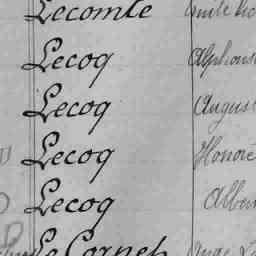 Lecomte
Lecoq Alphons
Lecoq August
Lecoq Honoré
Lecoq Alber
Le Cornec Ange